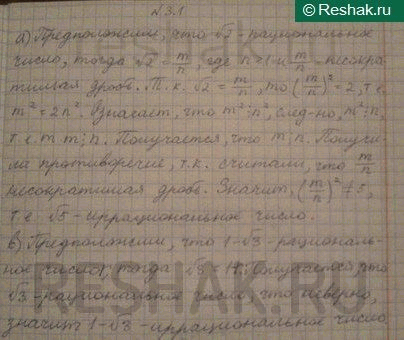 Reshak.ru
№3.1
а) Предположим, что √2 - рациональное
число, тогда √2 = m/n, где n ≠ 1 и m/n - несокра-
тимая дробь. Т.к. √2 = m/n, то (m/n)² = 2, т.е.
m² = 2n². Значает, что m² ⋮ n², след-но, m² ⋮ n,
т.е. m ⋮ n. Получается, что m ⋮ n. Получи-
ла противоречие, т.к. считали, что m/n
несократимая дробь. Значит, (m/n)² ≠ 5,
т.е. √5 - иррациональное число.
в) Предположим, что 1-√3 - рациональ-
ное число, тогда √3 = Получается, что
√3 - рациональное число, что неверно,
значит 1-√3 - иррациональное число
RESHAK.RU